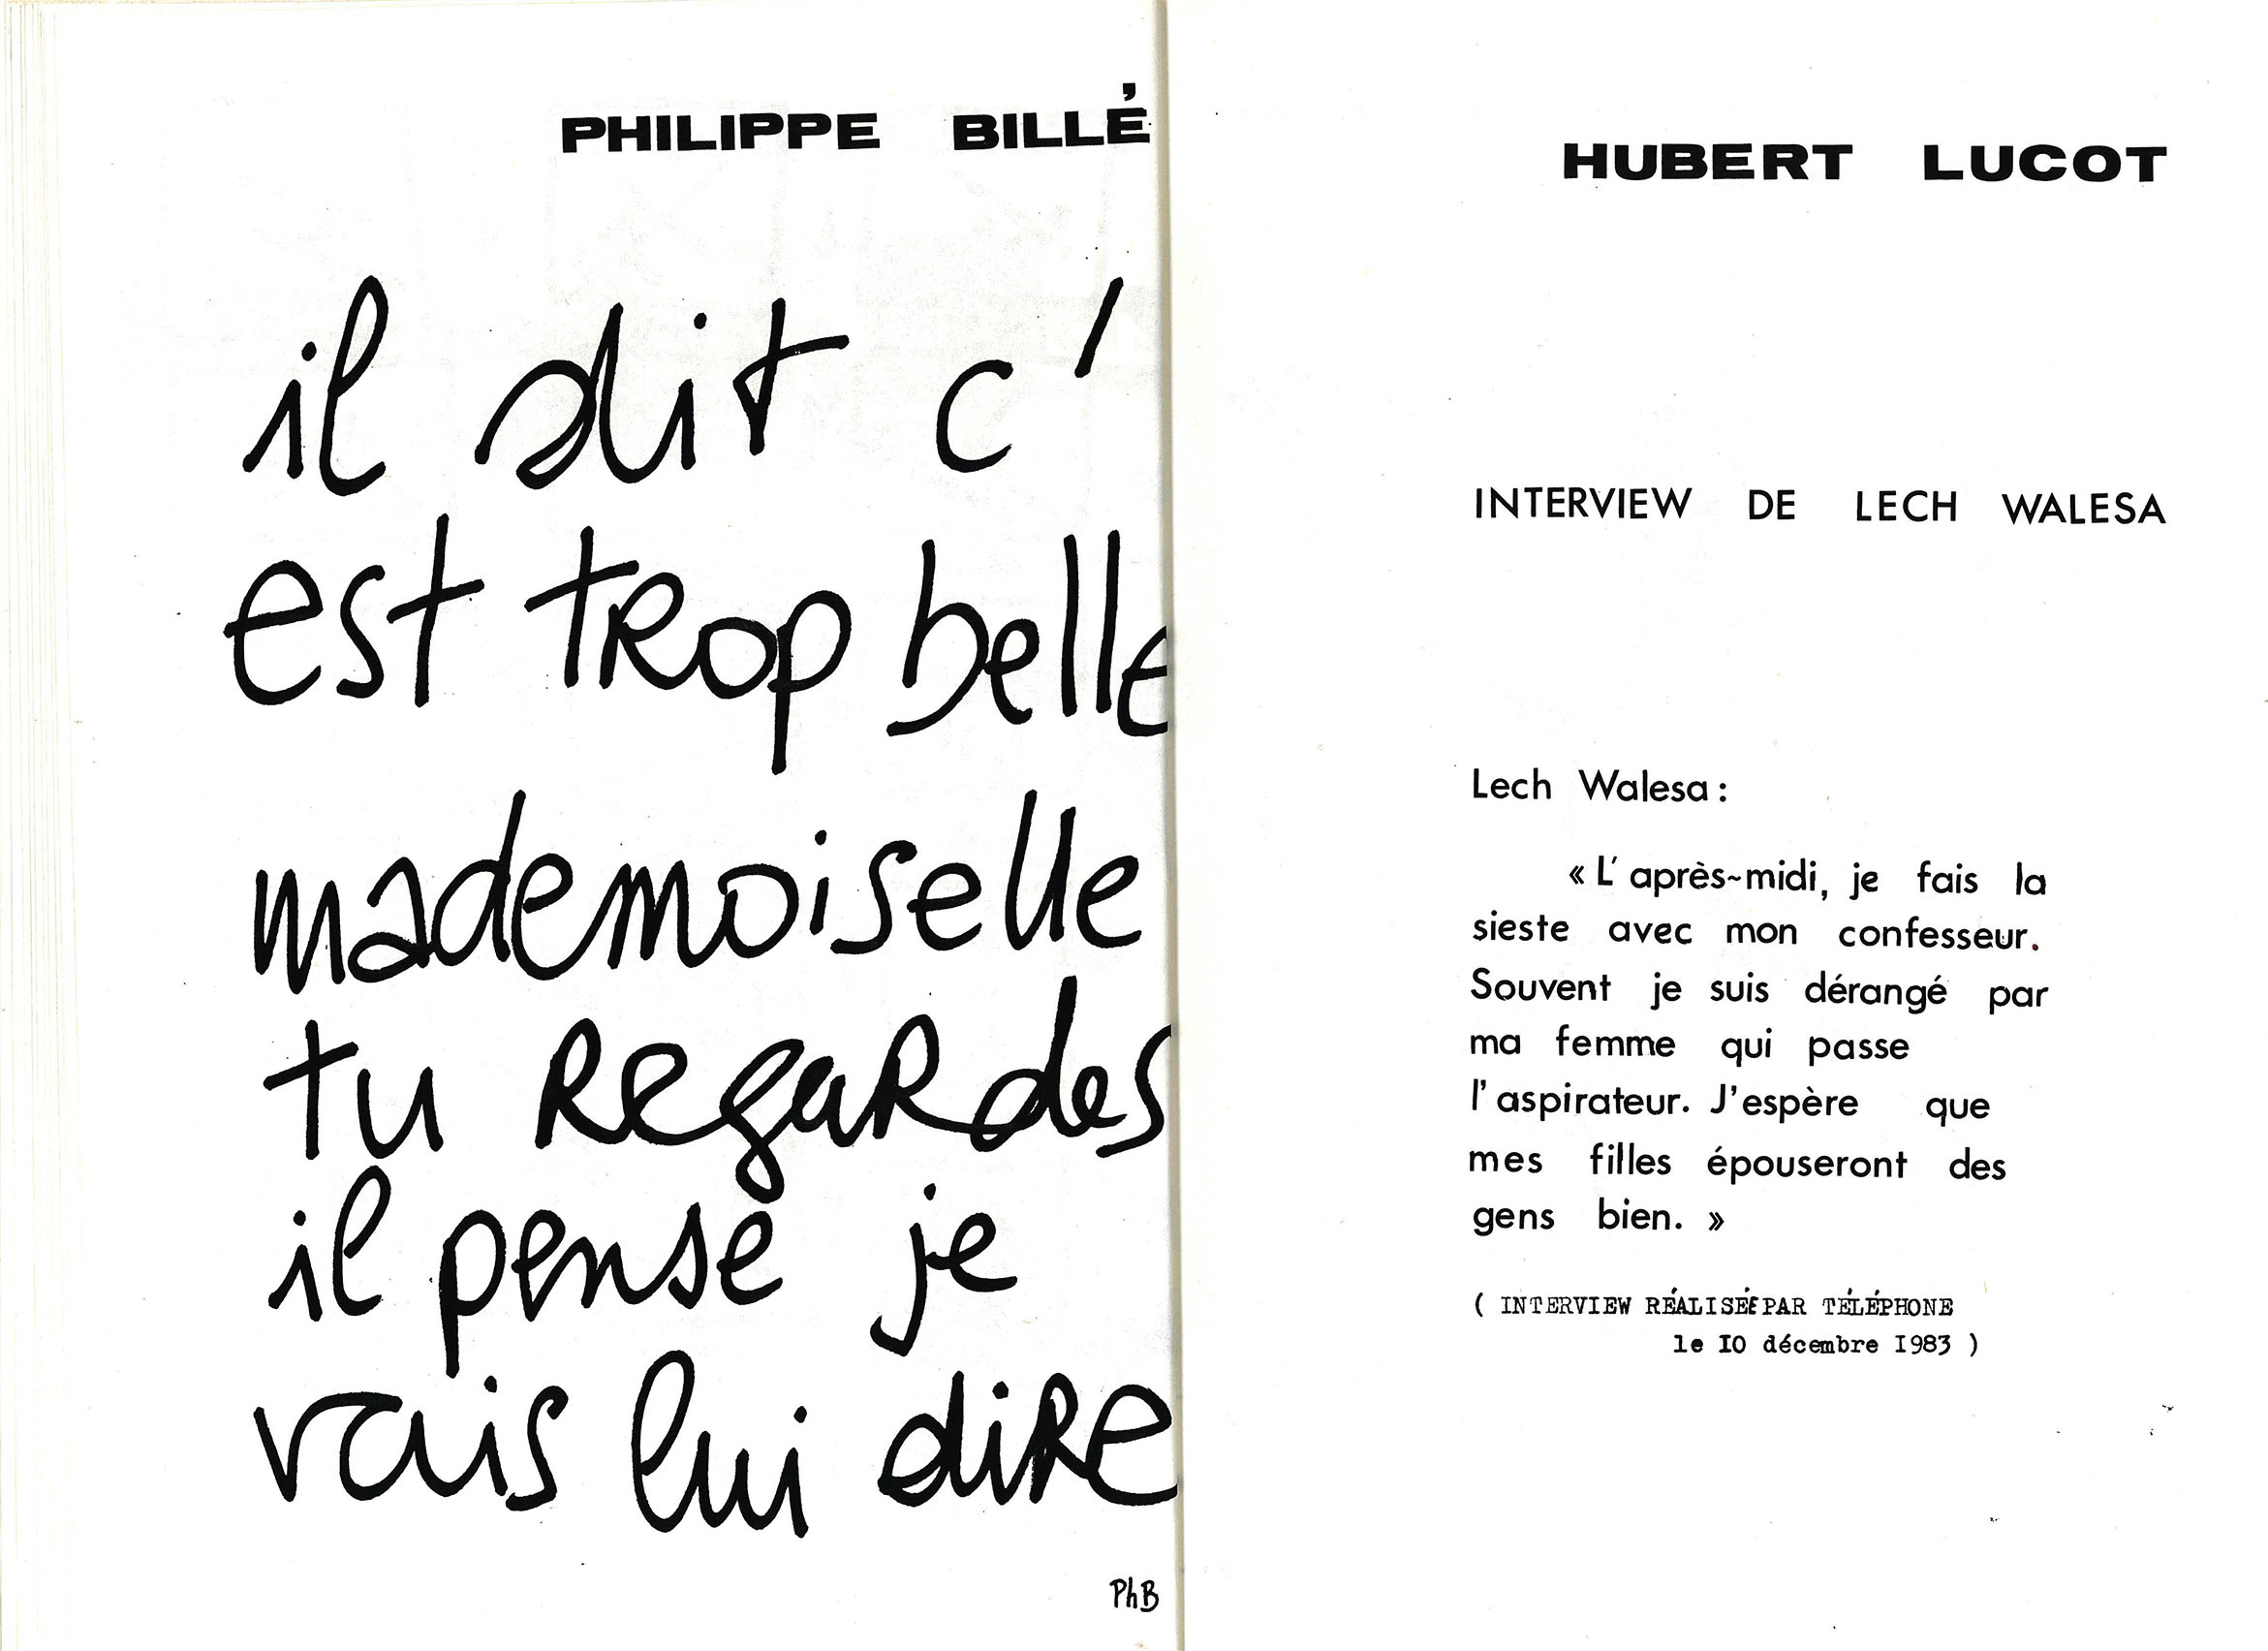 PHILIPPE BILLÉ
il dit c'
est trop belle
mademoiselle
tu regardes
il pense je
vais lui dire
PhB
HUBERT LUCOT
INTERVIEW DE LECH WALESA
Lech Walesa :
« L' après-midi, je fais la
sieste avec mon confesseur.
Souvent je suis dérangé par
ma femme qui passe
l'aspirateur. J'espère que
mes filles épouseront des
gens bien. »
( INTERVIEW RÉALISÉE PAR TÉLÉPHONE
le 10 décembre 1983 )